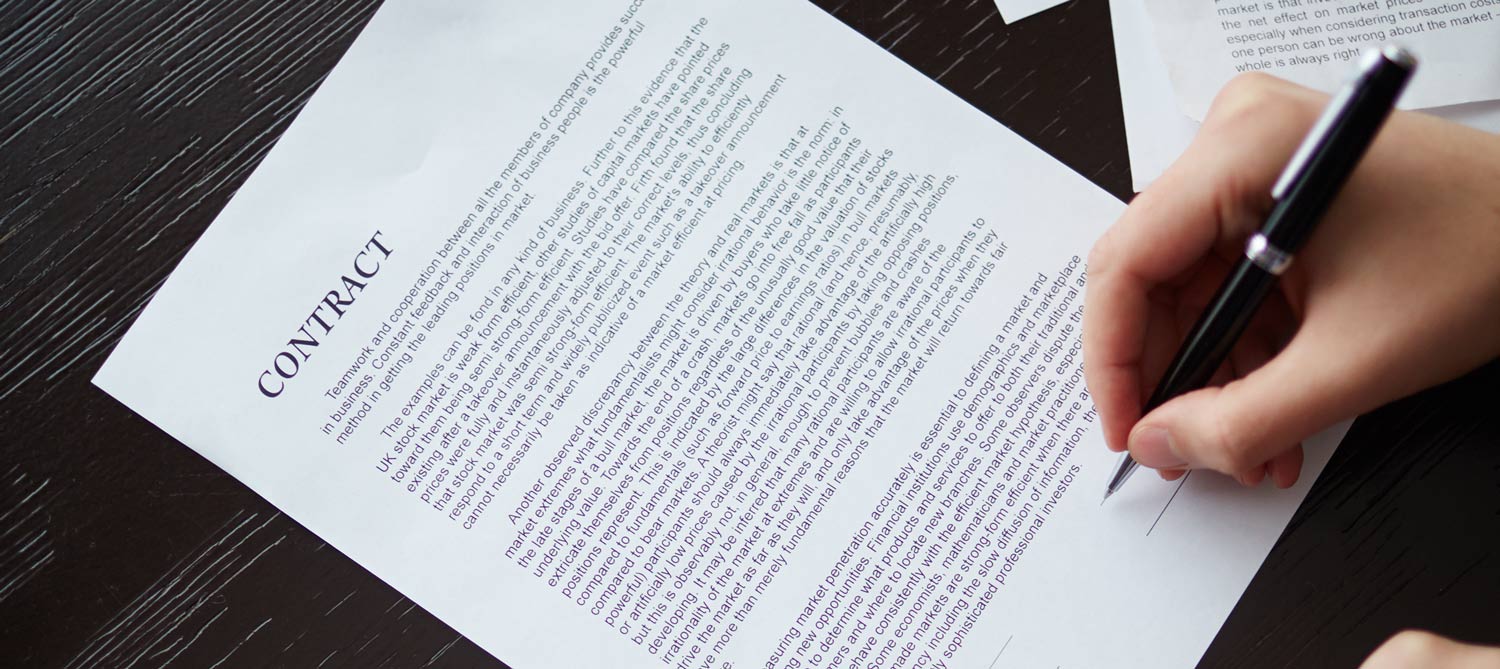 CONTRACT
Teamwork and cooperation between all the members of company provides succ
in business. Constant feedback and interaction of business people is the powerful
method in getting the leading positions in market.
The examples can be fond in any kind of business. Further to this evidence that the
UK stock market is weak form efficient, other studies of capital markets have pointed
toward them being semi strong-form efficient. Studies have compared the share prices
existing after a takeover announcement with the bid offer. Firth found that the share
prices were fully and instantaneously adjusted to their correct levels, thus concluding
that stock market was semi strong-form efficient. The market's ability to efficiently
respond to a short term and widely publicized event such as a takeover announcement
cannot necessarily be taken as indicative of a market efficient at pricing.
Another observed discrepancy between the theory and real markets is that at
market extremes what fundamentalists might consider irrational behavior is the norm: in
the late stages of a bull market, the market is driven by buyers who take little notice of
underlying value. Towards the end of a crash, markets go into free fall as participants
extricate themselves from positions regardless of the unusually good value that their
positions represent. This is indicated by the large differences in the valuation of stocks
compared to fundamentals (such as forward price to earnings ratios) in bull markets
compared to bear markets. A theorist might say that rational (and hence, presumably,
powerful) participants should always immediately take advantage of the artificially high
or artificially low prices caused by the irrational participants by taking opposing positions,
but this is observably not, in general, enough to prevent bubbles and crashes
developing. It may be inferred that many rational participants are aware of the
irrationality of the market at extremes and are willing to allow irrational participants to
drive the market as far as they will, and only take advantage of the prices when they
ve more than merely fundamental reasons that the market will return towards fair
e.
asuring market penetration accurately is essential to defining a market and
ng new opportunities. Financial institutions use demographics and marketplace
to determine what products and services to offer to both their traditional and
mers and where to locate new branches. Some observers dispute tha
ehave consistently with the efficient market hypothesis, especia
ome economists, mathematicians and market practitione
made markets are strong-form efficient when there a
cy including the slow diffusion of information, th
ly sophisticated professional investors.
market is that inve
the net effect on market prices
especially when considering transaction costs
one person can be wrong about the market -
whole is always right